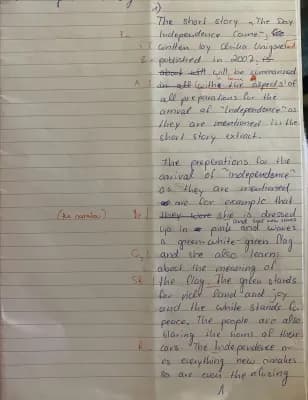 The short story „The Day
Independence Came",
written by
published in 2007,
will be summarized
in the aspects of
all preparations for the
arrival of "Independence" as
they are mentioned in the
short story extract.
The preparations for the
arrival of "independence"
as they are mentioned
are for example that
(the narrator) she is dressed
up in pink and waves
a green-white-green flag
and she also learns
about the meaning of
the flag. The green stands
for rich land and joy
and the white stands for
peace. The people are also
blaring the horns of their
cars. The Independence
everything new
so are even the